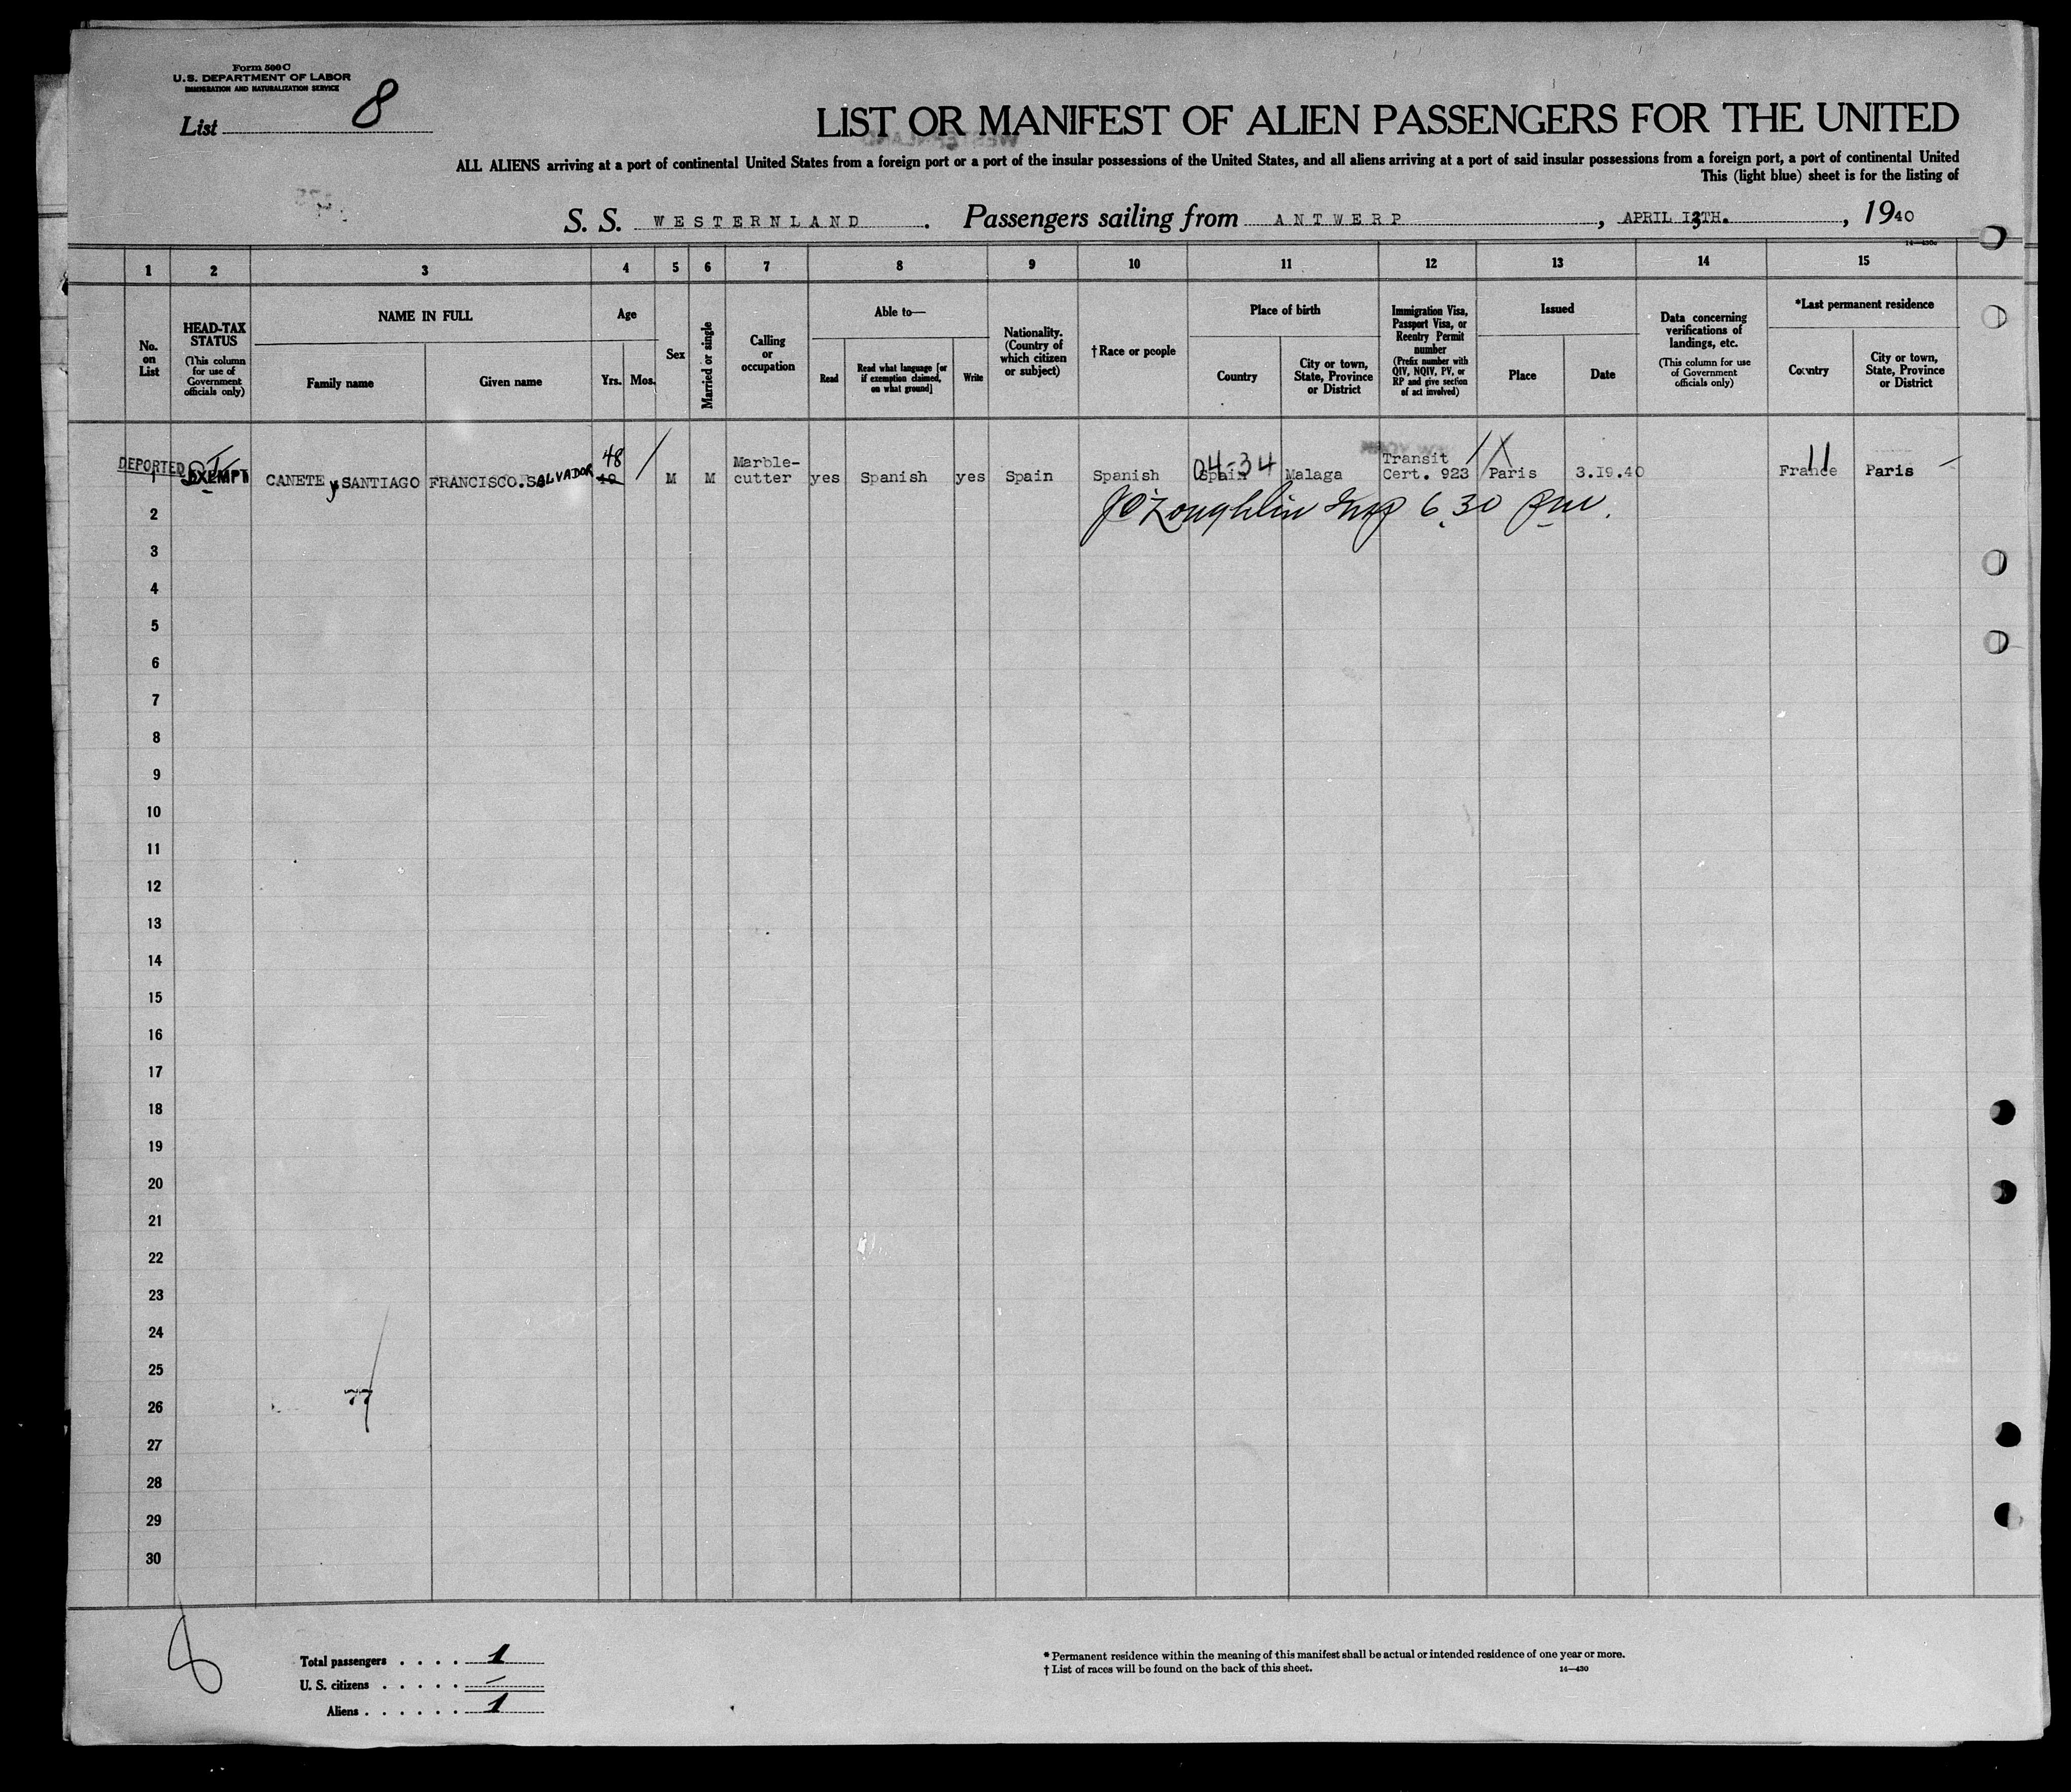 Form 500 C
U.S. DEPARTMENT OF LABOR
IMMIGRATION AND NATURALIZATION SERVICE
List 8
LIST OR MANIFEST OF ALIEN PASSENGERS FOR THE UNITED
ALL ALIENS arriving at a port of continental United States from a foreign port or a port of the insular possessions of the United States, and all aliens arriving at a port of said insular possessions from a foreign port, a port of continental United
This (light blue) sheet is for the listing of
S. S. WESTERNLAND. Passengers sailing from ANTWERP, APRIL 13TH., 1940
14—430a
1 2 3 4 5 6 7 8 9 10 11 12 13 14 15
No. on List
HEAD-TAX STATUS
(This column for use of Government officials only)
NAME IN FULL
Family name
Given name
Age
Yrs.
Mos.
Sex
Married or single
Calling or occupation
Able to—
Read
Read what language [or if exemption claimed, on what ground]
Write
Nationality. (Country of which citizen or subject)
†Race or people
Place of birth
Country
City or town, State, Province or District
Immigration Visa, Passport Visa, or Reentry Permit number
(Prefix number with QIV, NQIV, PV, or RP and give section of act involved)
Issued
Place
Date
Data concerning verifications of landings, etc.
(This column for use of Government officials only)
*Last permanent residence
Country
City or town, State, Province or District
DEPORTED
1 EXEMPT CANETE y SANTIAGO FRANCISCO.SALVADOR 48 M M Marble-cutter yes Spanish yes Spain Spanish Spain 04-34 Malaga Transit Cert. 923 Paris 3.19.40 France Paris
2 J O'Loughlin Insp 6.30 pm.
3
4
5
6
7
8
9
10
11
12
13
14
15
16
17
18
19
20
21
22
23
24
25
26
77
27
28
29
30
8
Total passengers . . . . 1
U. S. citizens . . . . . –
Aliens . . . . . . 1
* Permanent residence within the meaning of this manifest shall be actual or intended residence of one year or more.
† List of races will be found on the back of this sheet.
14—430